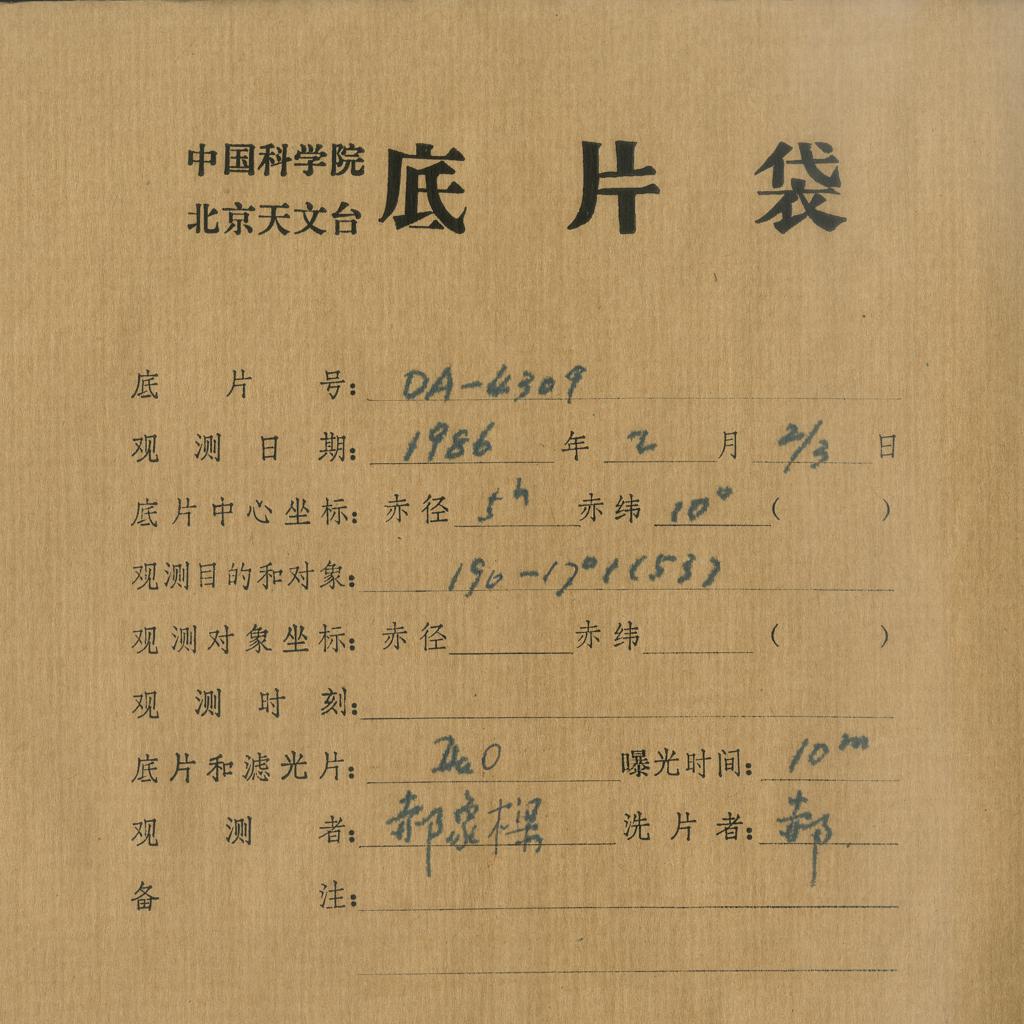 中国科学院
北京天文台
底片袋
底片号: DA-4309
观测日期: 1986年2月2/3日
底片中心坐标: 赤径 5h 赤纬 10° ( )
观测目的和对象:
观测对象坐标: 赤径 赤纬 ( )
观测时刻:
底片和滤光片: IIaO 曝光时间: 10m
观测者: 郝象樑 洗片者: 郝
备注: